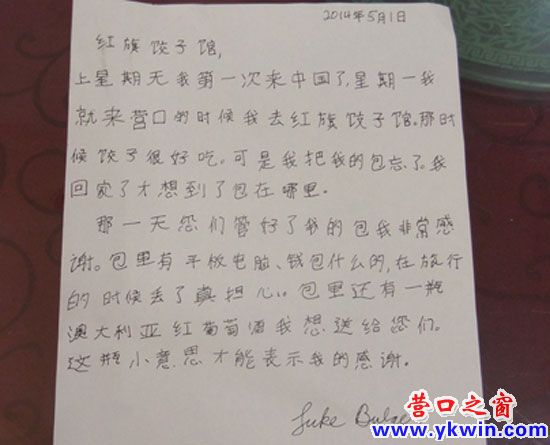 2014年5月1日
红旗饺子馆,
上星期天我第一次来中国了,星期一我
就来营口的时候我去红旗饺子馆。那时
候饺子很好吃。可是我把我的包忘了。我
回家了才想到了包在哪里。
那一天您们管好了我的包我非常感
谢。包里有平板电脑、钱包什么的,在旅行
的时候丢了真担心。包里还有一瓶
澳大利亚红葡萄酒我想送给您们。
这瓶小意思才能表示我的感谢。
Luke
营口之窗
www.ykwin.com